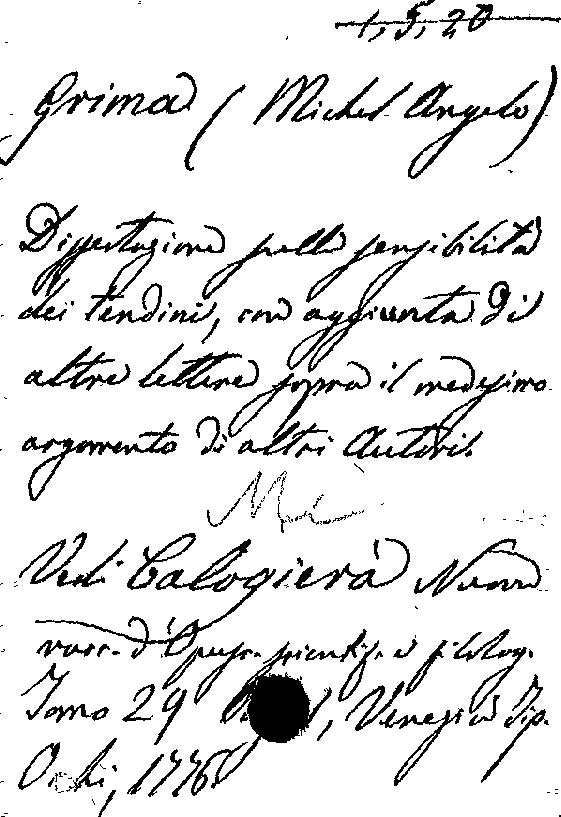 1, 5, 20
Grima (Michel Angelo)
Dissertazione sulla sensibilità
dei tendini, con aggiunta di
altre lettere sopra il medesimo
argomento di altri Autori.
Vedi Calogierà Nuova
racc. d'Opusc. scientif. e filolog.
Tomo 29 Venezia Tip.
Occhi, 1776